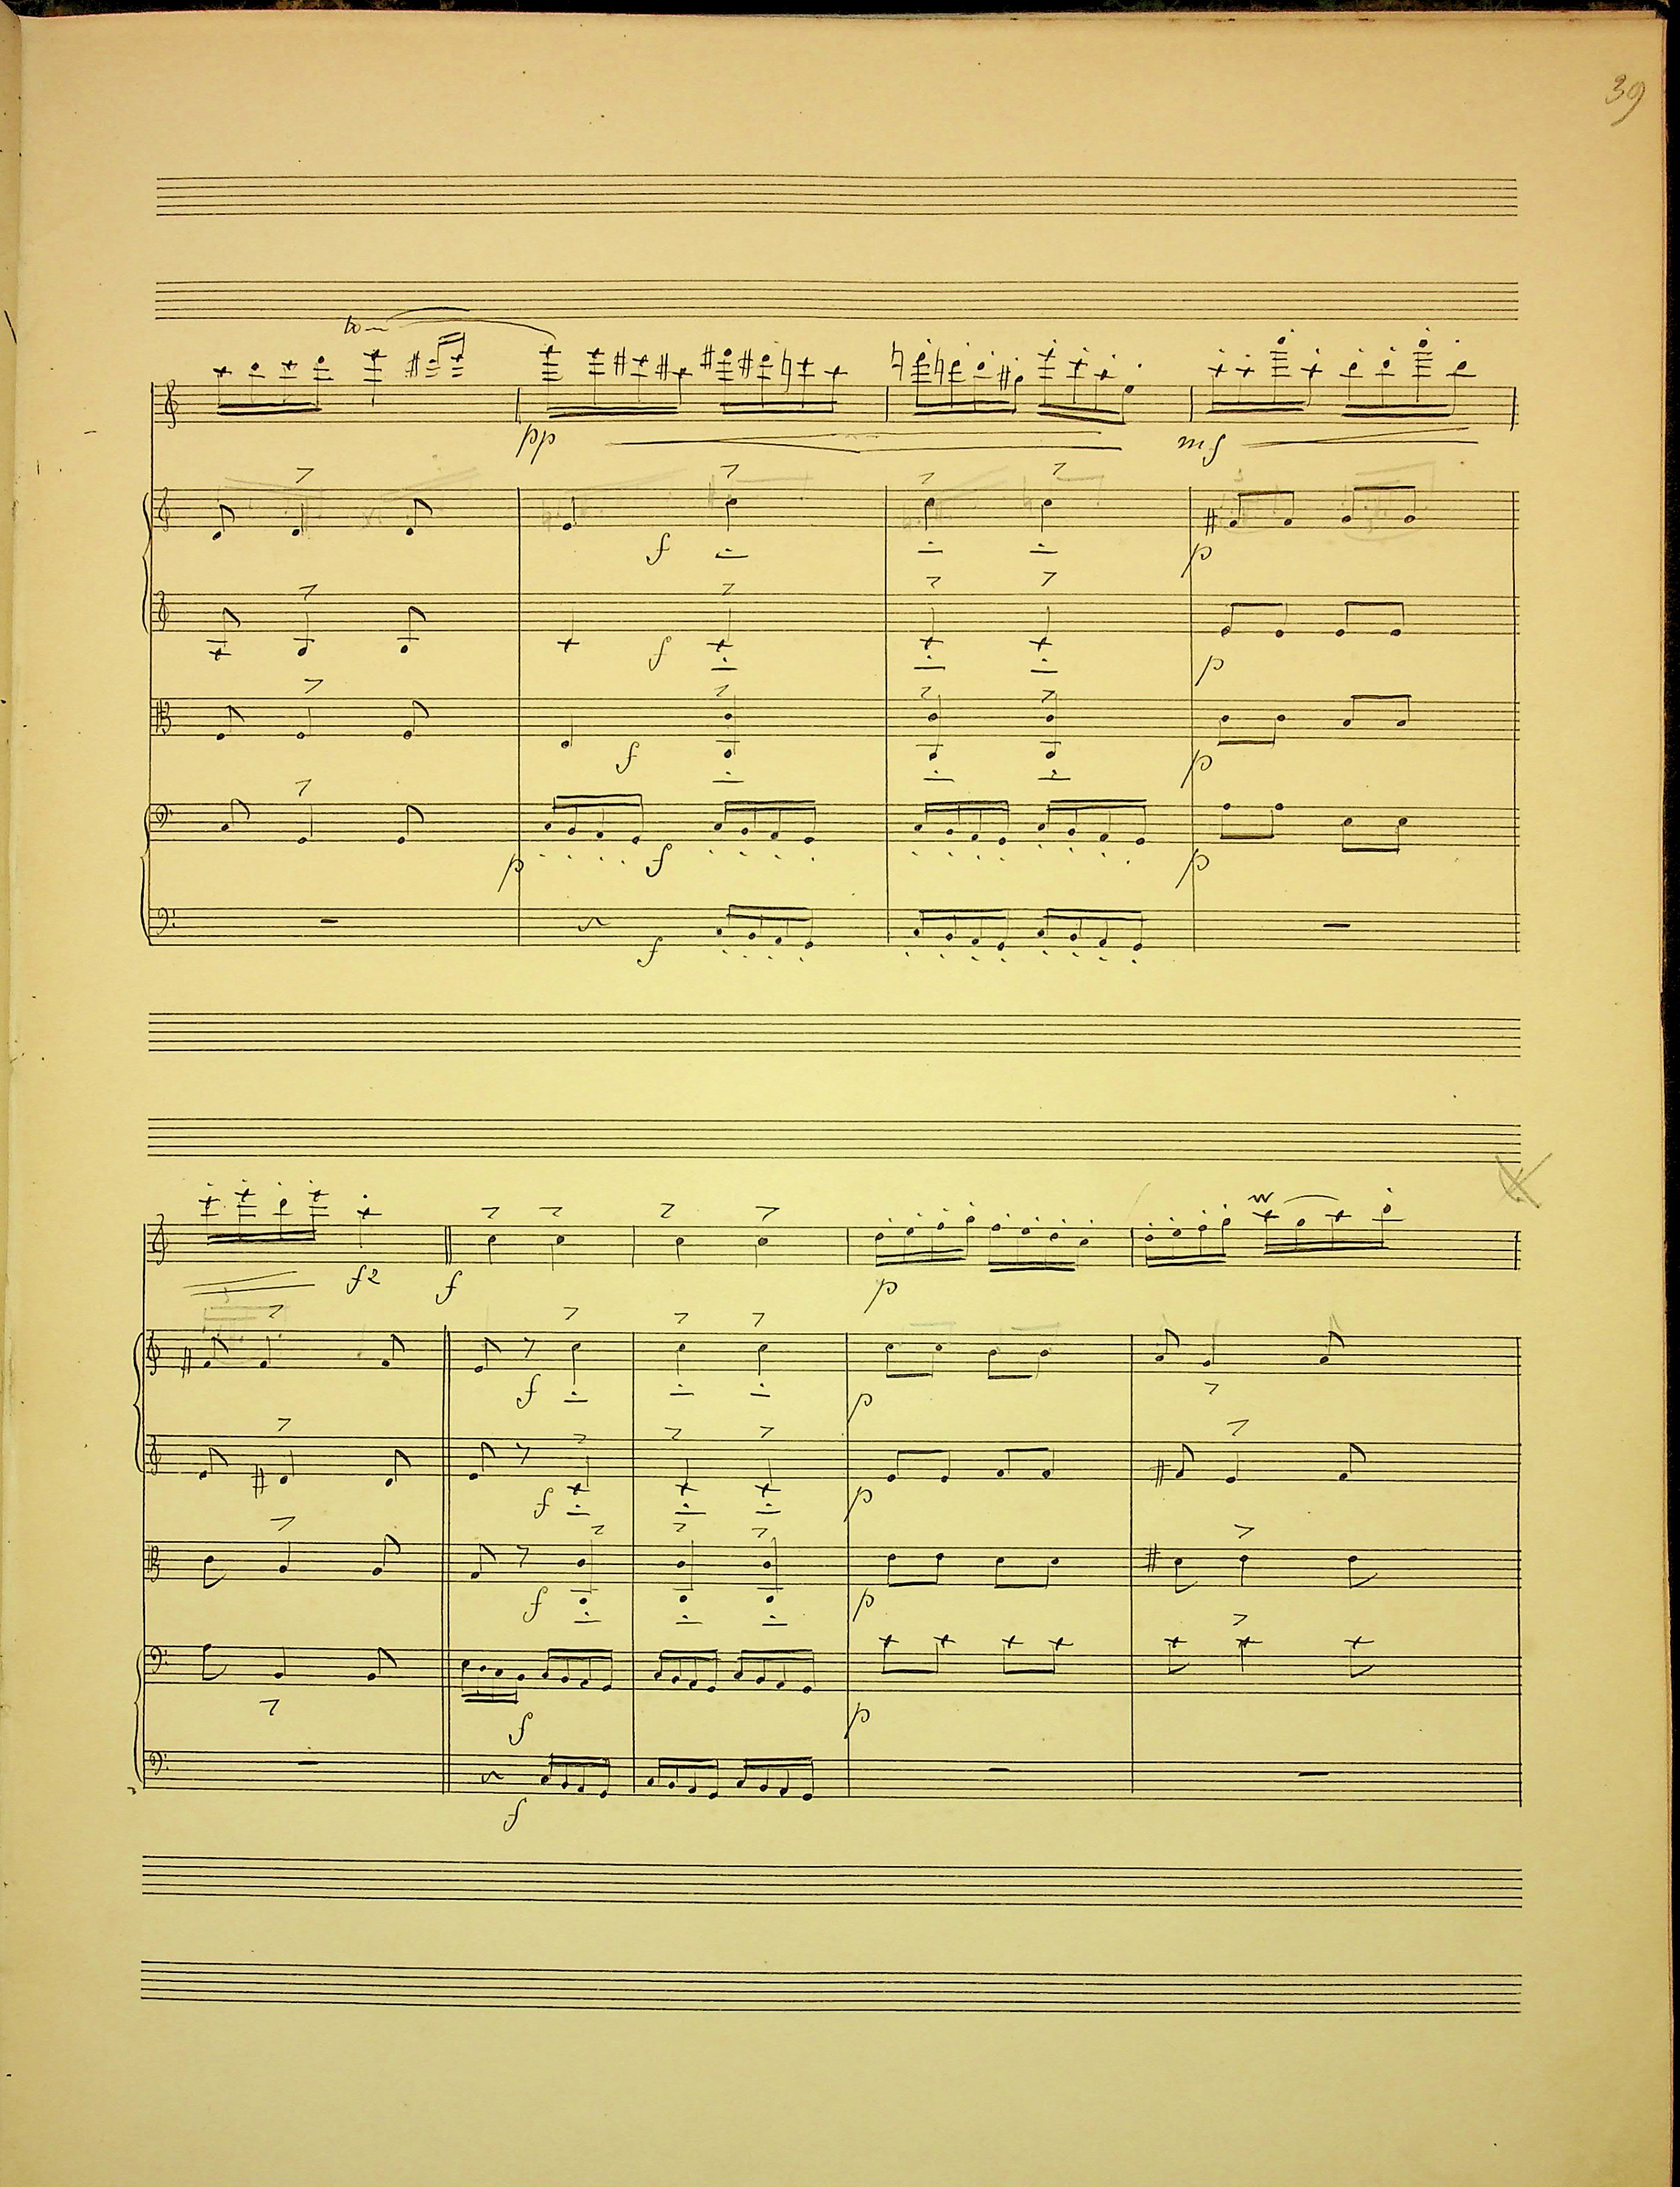 39
pp
mf
f
p
f
p
f
p
f
p
p
f
p
f
fz
f
p
f
p
f
p
f
p
f
p
f